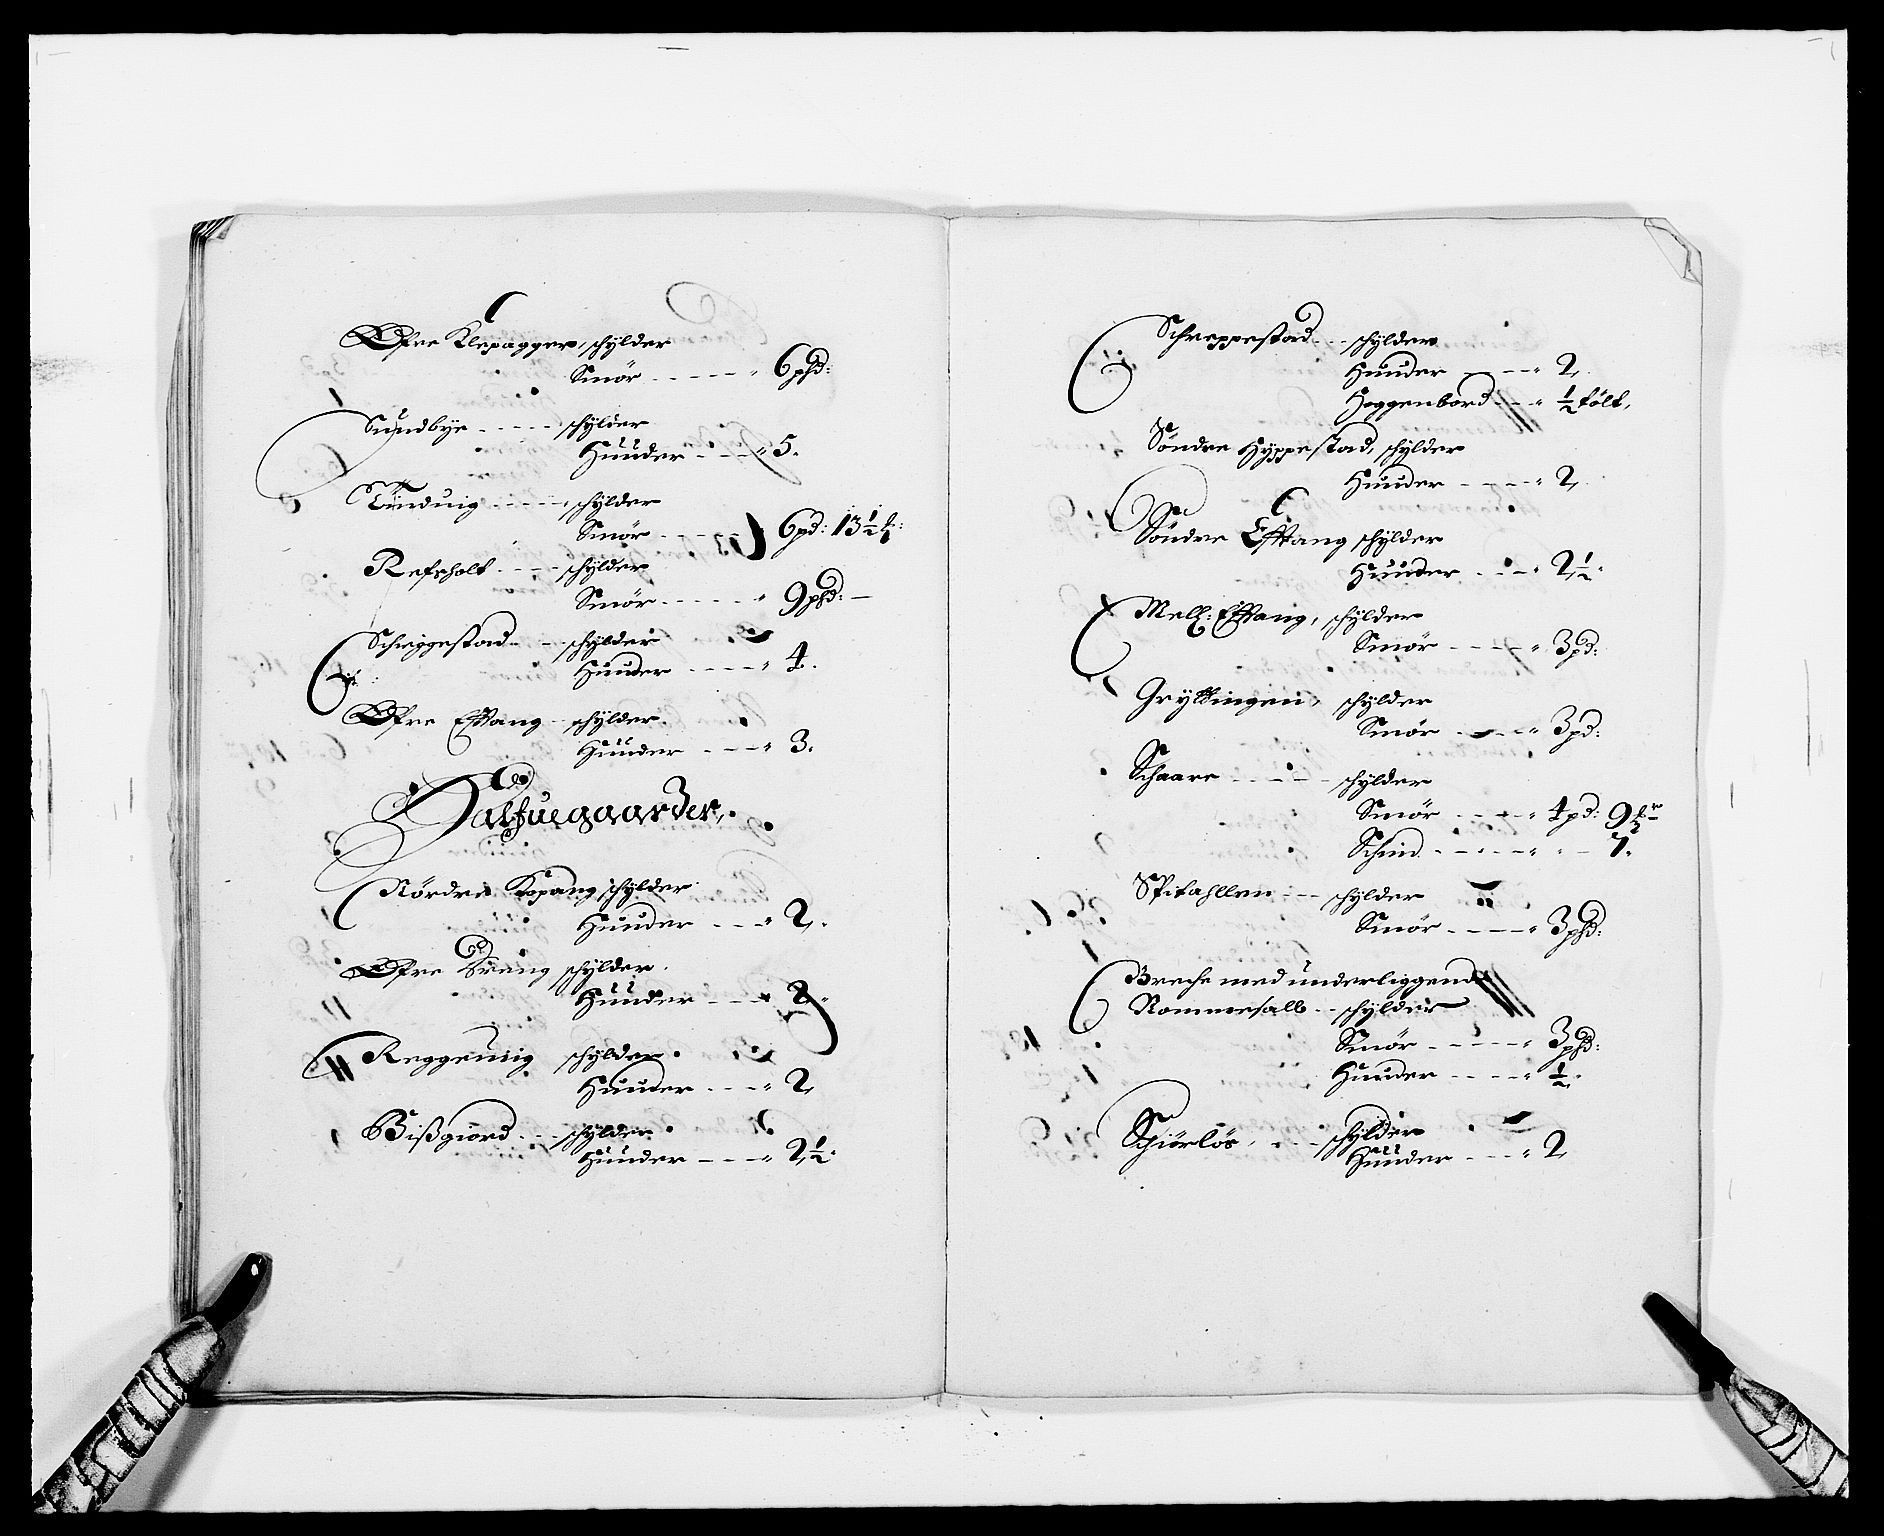 Øfre Klepagger, schylder
Smör - - - - - 6 phd:
Sundbye - - - - - schylder
Huuder - - - 5.
Tinduig - - - - - schylder
Smör - - - - - 6 pd: 13 1/2
Refsholt - - - - schylder
Smör - - - - - 9 phd: -
Schieggestad - - schylder
Huuder - - - - 4.
Øfre Efftang - schylder
Huuder - - - 3.
Halfuegaarder.
Nördre Kopang schylder
Huuder - - - 2.
Øfre schylder.
Huuder - - - 2.
Reggeuiig schylder
Huuder - - - 2
Bißgiord - - schylder
Huuder - - - 2 1/2
Schreppestad - - - schylder
Huuder - - - 2.
Hoggenbord - - 1/2 tölt,
Söndre Hyppestad, schylder
Huuder - - - - 2.
Söndre Efftang schylder
Huuder - - - 2 1/2.
Mell: Efftang, schylder
Smör - - - - 3 pd:
Gryttingen, schylder
Smör - - - - 3 pd:
Schaare - - - - schylder
Smör - - - - 4 pd: 9
Schind - - - - - - 7.
Spitahllen - - - schylder
Smör - - - - - 3 phd:
Breche med underliggende
Rommesalb - - schylder
Smör - - - - - 3 phd:
Huuder - - - - 1/2.
Schiörlös, - - - schylder
Huuder - - - 2